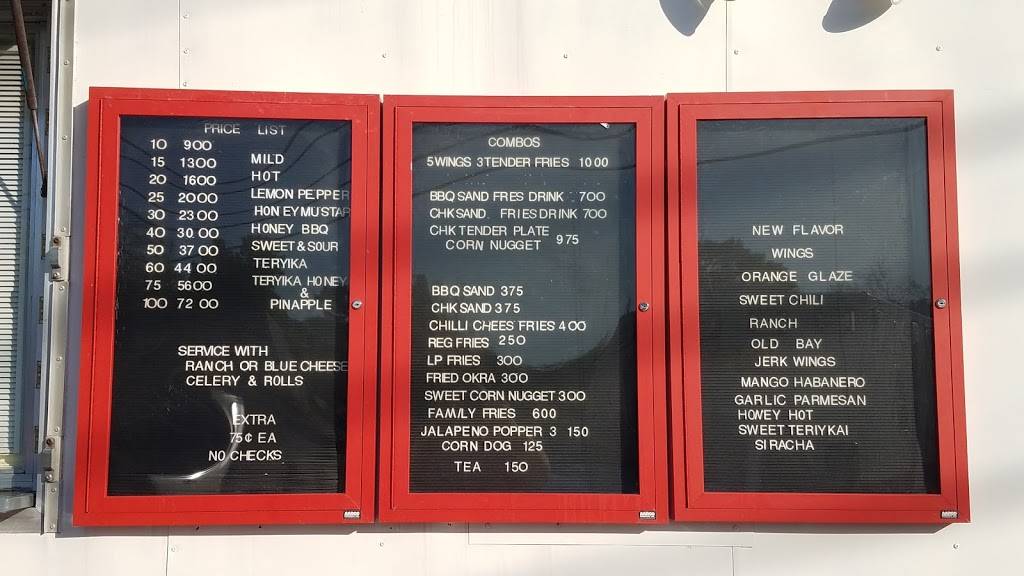 PRICE LIST
10 900
15 1300 MILD
20 1600 HOT
25 2000 LEMON PEPPER
30 2300 HONEYMUSTAR
40 3000 HONEY BBQ
50 3700 SWEET & SOUR
60 4400 TERYIKA
75 5600 TERYIKA HONEY
&
100 7200 PINAPPLE
SERVICE WITH
RANCH OR BLUE CHEESE
CELERY & ROLLS
EXTRA
75¢ EA
NO CHECKS
COMBOS
5 WINGS 3 TENDER FRIES 1000
BBQ SAND FRES DRINK 700
CHK SAND. FRIES DRINK 700
CHK TENDER PLATE
CORN NUGGET 975
BBQ SAND 375
CHK SAND 375
CHILLI CHEES FRIES 400
REG FRIES 250
LP FRIES 300
FRIED OKRA 300
SWEET CORN NUGGET 300
FAM/LY FRIES 600
JALAPENO POPPER 3 150
CORN DOG 125
TEA 150
NEW FLAVOR
WINGS
ORANGE GLAZE
SWEET CHILI
RANCH
OLD BAY
JERK WINGS
MANGO HABANERO
GARLIC PARMESAN
HOWEY HOT
SWEET TERIYKAI
SIRACHA